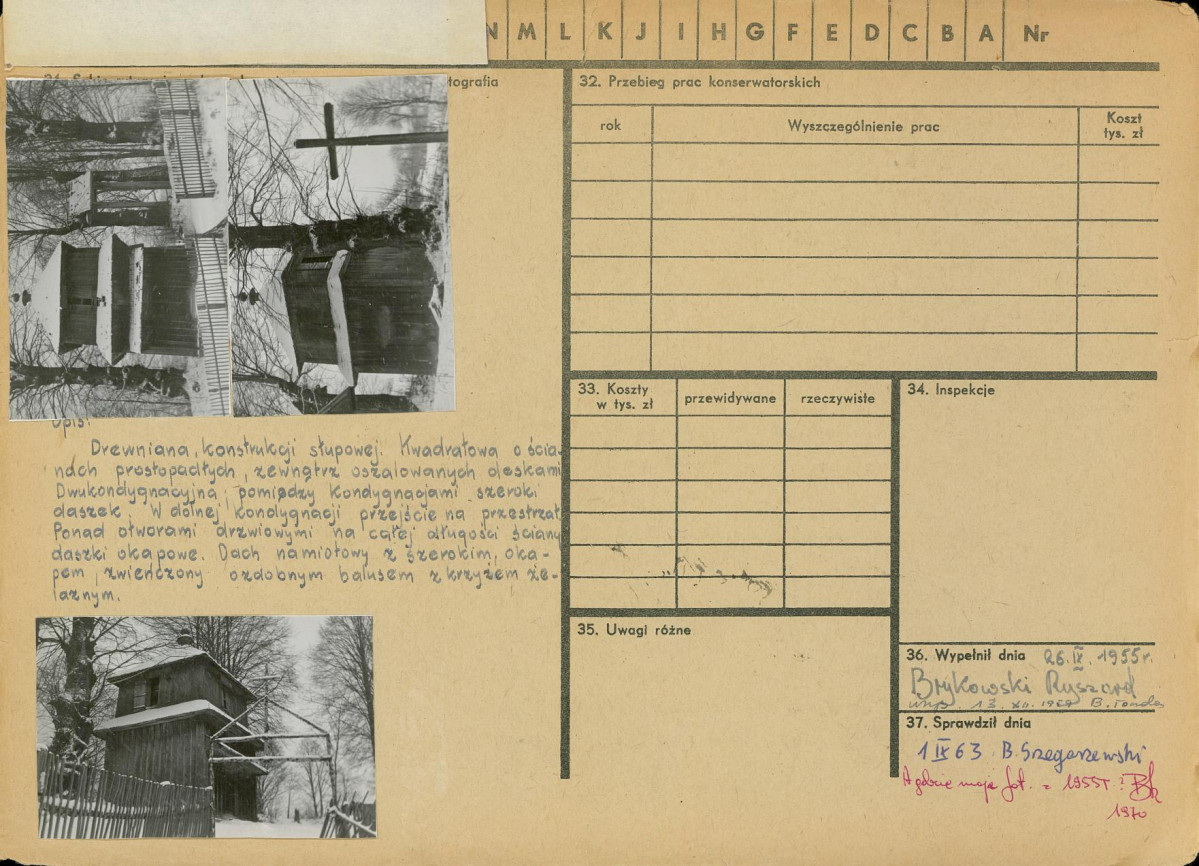 N M L K J I H G F E D C B A Nr
tografia
opis:
Drewniana, konstrukcji słupowej. Kwadratowa o ścia-
nach prostopadłych, zewnątrz oszalowanych deskami
Dwukondygnacyjna, pomiędzy kondygnacjami szeroki
daszek. W dolnej kondygnacji przejście na przestrzał.
Ponad otworami drzwiowymi na całej długości ściany
daszki okapowe. Dach namiotowy z szerokim, oka-
pem, zwieńczony ozdobnym balusem z krzyżem że-
laznym.
32. Przebieg prac konserwatorskich
rok
Wyszczególnienie prac
Koszt
tys. zł
33. Koszty
w tys. zł
przewidywane
rzeczywiste
34. Inspekcje
35. Uwagi różne
36. Wypełnił dnia 26.IX.1955r.
Brykowski Ryszard
13. XII. B.
37. Sprawdził dnia
1 IX 63 B. Szegarzewski
A gdzie moje fot. z 1955r?
1970